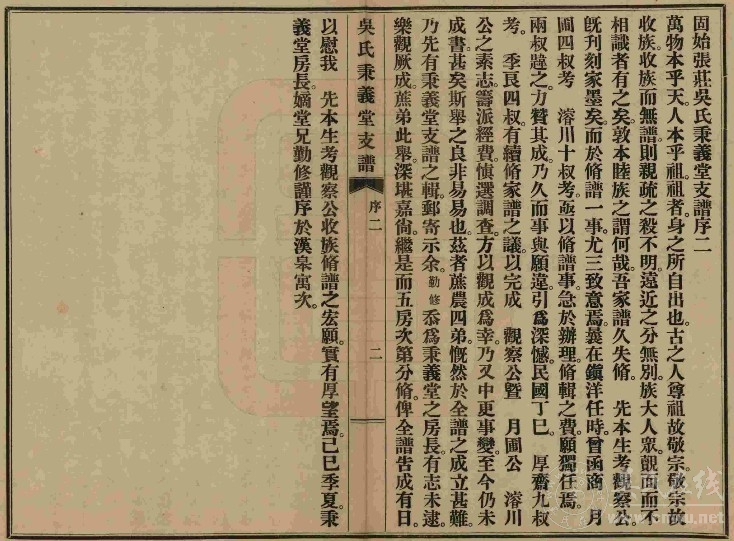 固始張莊吳氏秉義堂支譜序二
萬物本乎天。人本乎祖。祖者身之所自出也。古之人尊祖故敬宗。敬宗故
收族。收族而無譜。則親疏之殺不明。遠近之分無別。族大人眾。覿面而不
相識者有之矣。敦本睦族之謂何哉。吾家譜久失脩 先本生考觀察公。
旣刋刻家墨矣。而於脩譜一事。尤三致意焉。曩在鎭洋任時。曾函商 月
圃四叔考 濬川十叔考。亟以脩譜事。急於辦理。脩輯之費。願獨任焉。
兩叔韙之。力贊其成。乃久而事與願違。引爲深憾。民國丁巳 厚齋九叔
考 季艮四叔。有續脩家譜之議。以完成 觀察公曁 月圃公 濬川
公之素志。籌派經費。愼選調查。方以觀成爲幸。乃又中更事變。至今仍未
成書。甚矣。斯舉之良非易易也。茲者蔗農四弟。慨然於全譜之成立甚難。
乃先有秉義堂支譜之輯。郵寄示余。勤脩忝爲秉義堂之房長。有志未逮。
樂觀厥成。蔗弟此舉。深堪嘉尙。繼是而五房次第分脩。俾全譜吿成有日。
吳氏秉義堂支譜
序二
二
以慰我 先本生考觀察公收族脩譜之宏願。實有厚望焉。己巳季夏。秉
義堂房長。嫡堂兄勤修。謹序於漢皋寓次。
www.cnwu.net